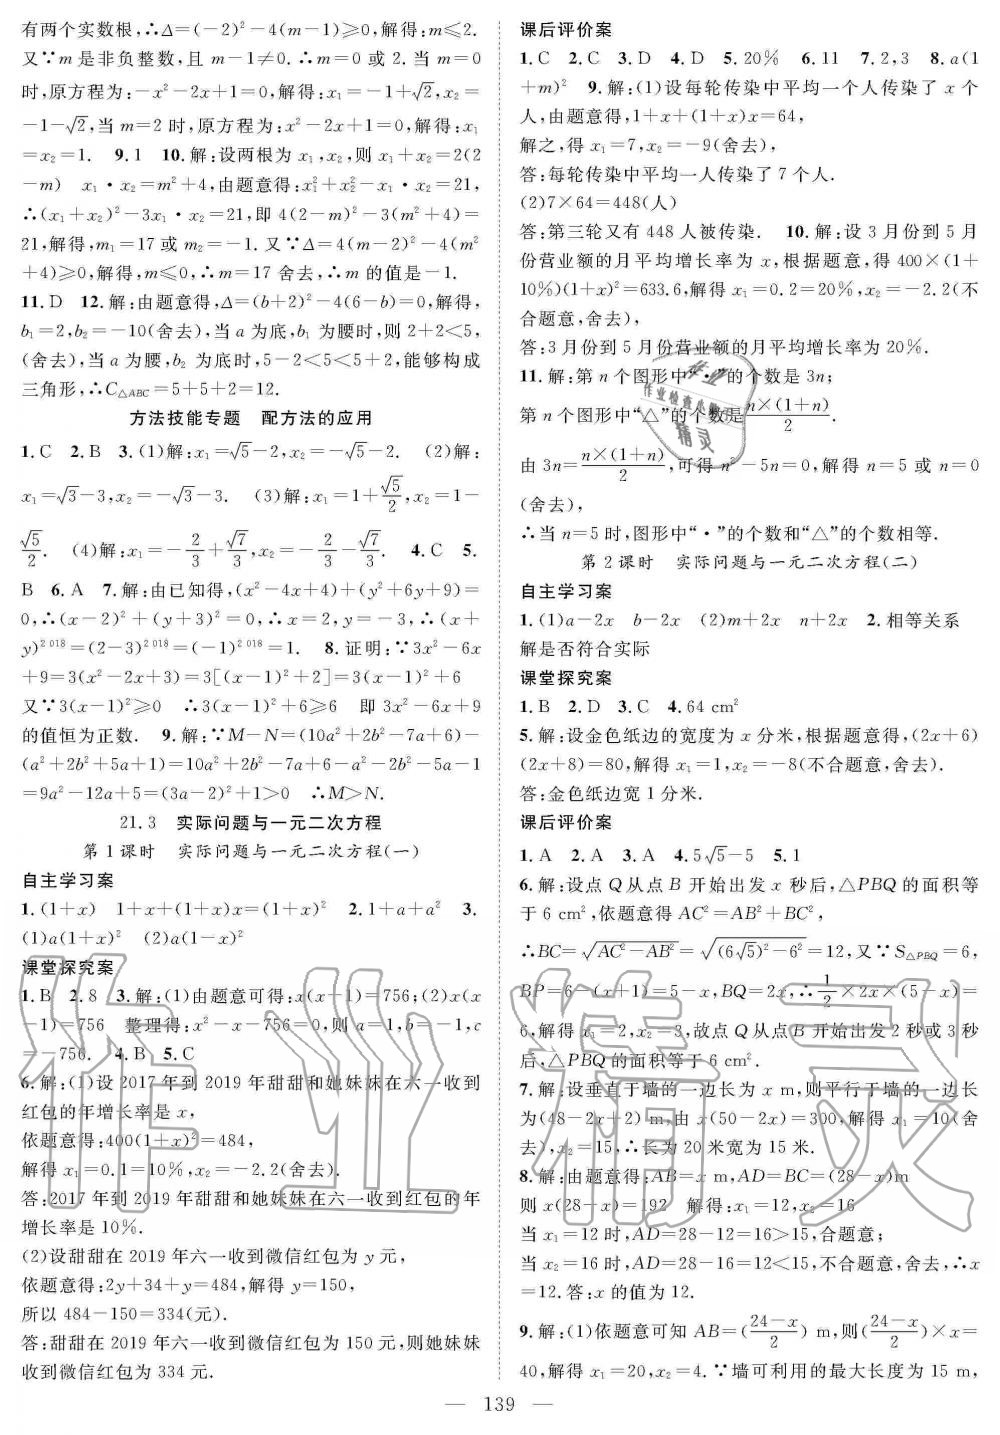 有两个实数根,∴Δ=(-2)²-4(m-1)≥0,解得:m≤2.
又∵m是非负整数,且 m-1≠0.∴m=0 或 2.当 m=0
时,原方程为:-x²-2x+1=0,解得:x₁=-1+√2,x₂=
-1-√2,当 m=2 时,原方程为:x²-2x+1=0,解得:x₁
=x₂=1. 9.1 10.解:设两根为 x₁,x₂,则 x₁+x₂=2(2
-m) x₁·x₂=m²+4,由题意得:x₁²+x₂²-x₁·x₂=21,
∴(x₁+x₂)²-3x₁·x₂=21,即 4(2-m)²-3(m²+4)=
21,解得,m₁=17 或 m₂=-1.又∵Δ=4(m-2)²-4(m²
+4)≥0,解得,m≤0,∴m=17 舍去,∴m 的值是-1.
11.D 12.解:由题意得,Δ=(b+2)²-4(6-b)=0,解得,
b₁=2,b₂=-10(舍去),当 a 为底,b₁ 为腰时,则 2+2<5,
(舍去),当 a 为腰,b₂ 为底时,5-2<5<5+2,能够构成
三角形,∴C△ABC=5+5+2=12.
方法技能专题 配方法的应用
1.C 2.B 3.(1)解:x₁=√5-2,x₂=-√5-2. (2)解:
x₁=√3-3,x₂=-√3-3. (3)解:x₁=1+√5/2,x₂=1-
√5/2. (4)解:x₁=-2/3+√7/3,x₂=-2/3-√7/3. 4.C 5.
B 6.A 7.解:由已知得,(x²-4x+4)+(y²+6y+9)=
0,∴(x-2)²+(y+3)²=0,∴x=2,y=-3,∴(x+
y)²⁰¹⁸=(2-3)²⁰¹⁸=(-1)²⁰¹⁸=1. 8.证明:∵3x²-6x
+9=3(x²-2x+3)=3[(x-1)²+2]=3(x-1)²+6
又∵3(x-1)²≥0 ∴3(x-1)²+6≥6 即 3x²-6x+9
的值恒为正数. 9.解:∵M-N=(10a²+2b²-7a+6)-
(a²+2b²+5a+1)=10a²+2b²-7a+6-a²-2b²-5a-1
=9a²-12a+5=(3a-2)²+1>0 ∴M>N.
21.3 实际问题与一元二次方程
第1课时 实际问题与一元二次方程(一)
自主学习案
1.(1+x) 1+x+(1+x)x=(1+x)² 2.1+a+a² 3.
(1)a(1+x)² (2)a(1-x)²
课堂探究案
1.B 2.8 3.解:(1)由题意可得:x(x-1)=756;(2)x(x
-1)=756 整理得:x²-x-756=0,则 a=1,b=-1,c
=-756. 4.B 5.C
6.解:(1)设 2017 年到 2019 年甜甜和她妹妹在六一收到
红包的年增长率是 x,
依题意得:400(1+x)²=484,
解得 x₁=0.1=10%,x₂=-2.2(舍去).
答:2017 年到 2019 年甜甜和她妹妹在六一收到红包的年
增长率是 10%.
(2)设甜甜在 2019 年六一收到微信红包为 y 元,
依题意得:2y+34+y=484,解得 y=150,
所以 484-150=334(元).
答:甜甜在 2019 年六一收到微信红包为 150 元,则她妹妹
收到微信红包为 334 元.
课后评价案
1.C 2.C 3.D 4.D 5.20% 6.11 7.2,3 8.a(1
+m)² 9.解:(1)设每轮传染中平均一个人传染了 x 个
人,由题意得,1+x+(1+x)x=64,
解之,得 x₁=7,x₂=-9(舍去),
答:每轮传染中平均一人传染了 7 个人.
(2)7×64=448(人)
答:第三轮又有 448 人被传染. 10.解:设 3 月份到 5 月
份营业额的月平均增长率为 x,根据题意,得 400×(1+
10%)(1+x)²=633.6,解得 x₁=0.2=20%,x₂=-2.2(不
合题意,舍去),
答:3 月份到 5 月份营业额的月平均增长率为 20%.
11.解:第 n 个图形中“·”的个数是 3n;
第 n 个图形中“△”的个数是n×(1+n)/2.
由 3n=n×(1+n)/2,可得 n²-5n=0,解得 n=5 或 n=0
(舍去),
∴当 n=5 时,图形中“·”的个数和“△”的个数相等.
第2课时 实际问题与一元二次方程(二)
自主学习案
1.(1)a-2x b-2x (2)m+2x n+2x 2.相等关系
解是否符合实际
课堂探究案
1.B 2.D 3.C 4.64 cm²
5.解:设金色纸边的宽度为 x 分米,根据题意得,(2x+6)
(2x+8)=80,解得 x₁=1,x₂=-8(不合题意,舍去).
答:金色纸边宽 1 分米.
课后评价案
1.A 2.A 3.A 4.5√5-5 5.1
6.解:设点 Q 从点 B 开始出发 x 秒后,△PBQ 的面积等
于 6 cm²,依题意得 AC²=AB²+BC²,
∴BC=√(AC²-AB²)=√((6√5)²-6²)=12,又∵S△PBQ=6,
BP=6-(x+1)=5-x,BQ=2x,∴1/2×2x×(5-x)=
6,解得 x₁=2,x₂=3,故点 Q 从点 B 开始出发 2 秒或 3 秒
后,△PBQ 的面积等于 6 cm².
7.解:设垂直于墙的一边长为 x m,则平行于墙的一边长
为(48-2x+2) m,由 x(50-2x)=300,解得 x₁=10(舍
去),x₂=15,∴长为 20 米宽为 15 米.
8.解:由题意得:AB=x m,AD=BC=(28-x)m
则 x(28-x)=192 解得:x₁=12,x₂=16
当 x₁=12 时,AD=28-12=16>15,合题意;
当 x₂=16 时,AD=28-16=12<15,不合题意,舍去,∴x
=12.答:x 的值为 12.
9.解:(1)依题意可知 AB=(24-x/2) m,则(24-x/2)×x=
40,解得 x₁=20,x₂=4.∵墙可利用的最大长度为 15 m,
— 139 —
作业精灵
作业
作业检查小
精灵